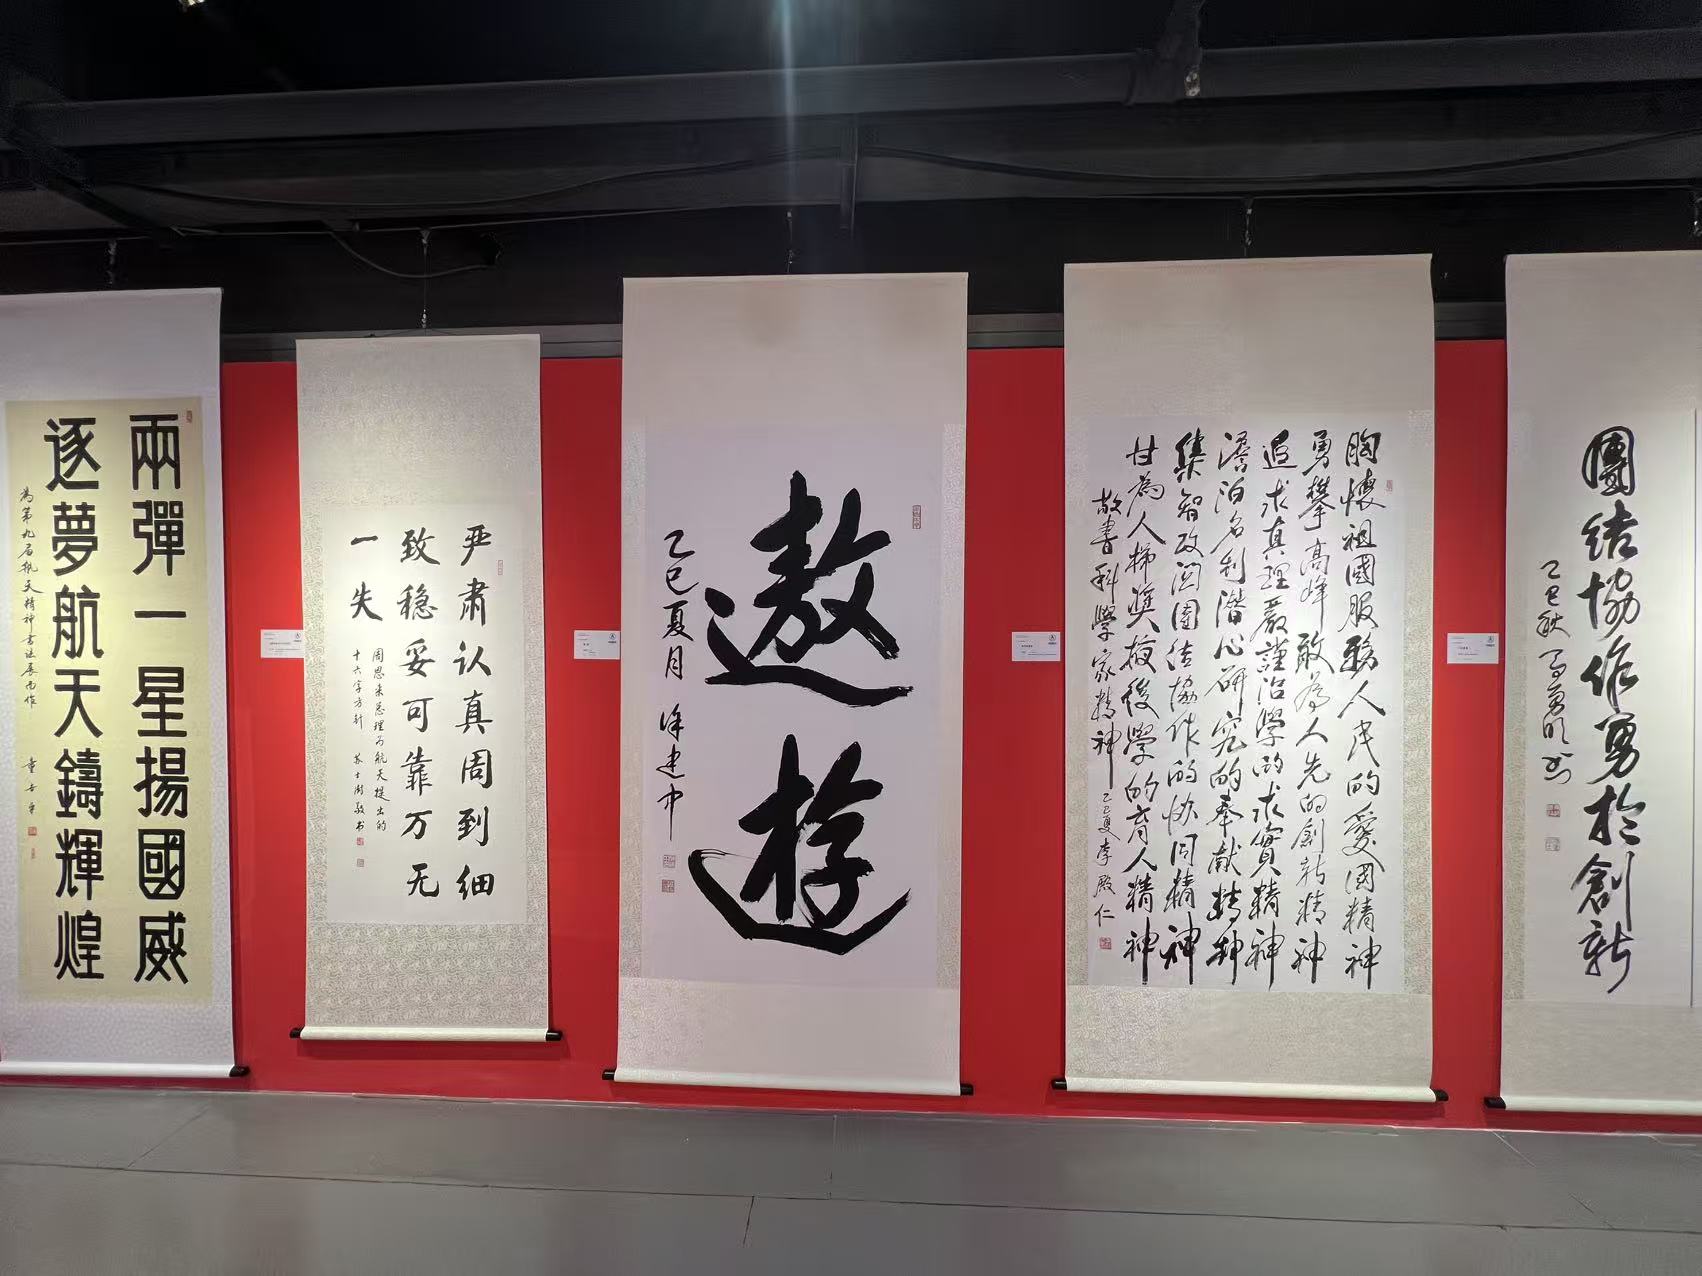 兩彈一星揚國威
逐夢航天鑄輝煌
為第九届航天精神書法展而作
严肃认真周到细
致稳妥可靠万无
一失
周恩来总理为航天提出的
十六字方针 苏士澍敬书
遨遊
乙巳夏月 徐建中
胸懷祖國服務人民的愛國精神
勇攀高峰敢為人先的創新精神
追求真理嚴謹治學的求實精神
澹泊名利潛心研究的奉献精神
集智攻関團结協作的协同精神
甘為人梯奨掖後學的育人精神
敬書科學家精神 乙巳夏 李殿仁
團结協作勇於創新
乙巳秋